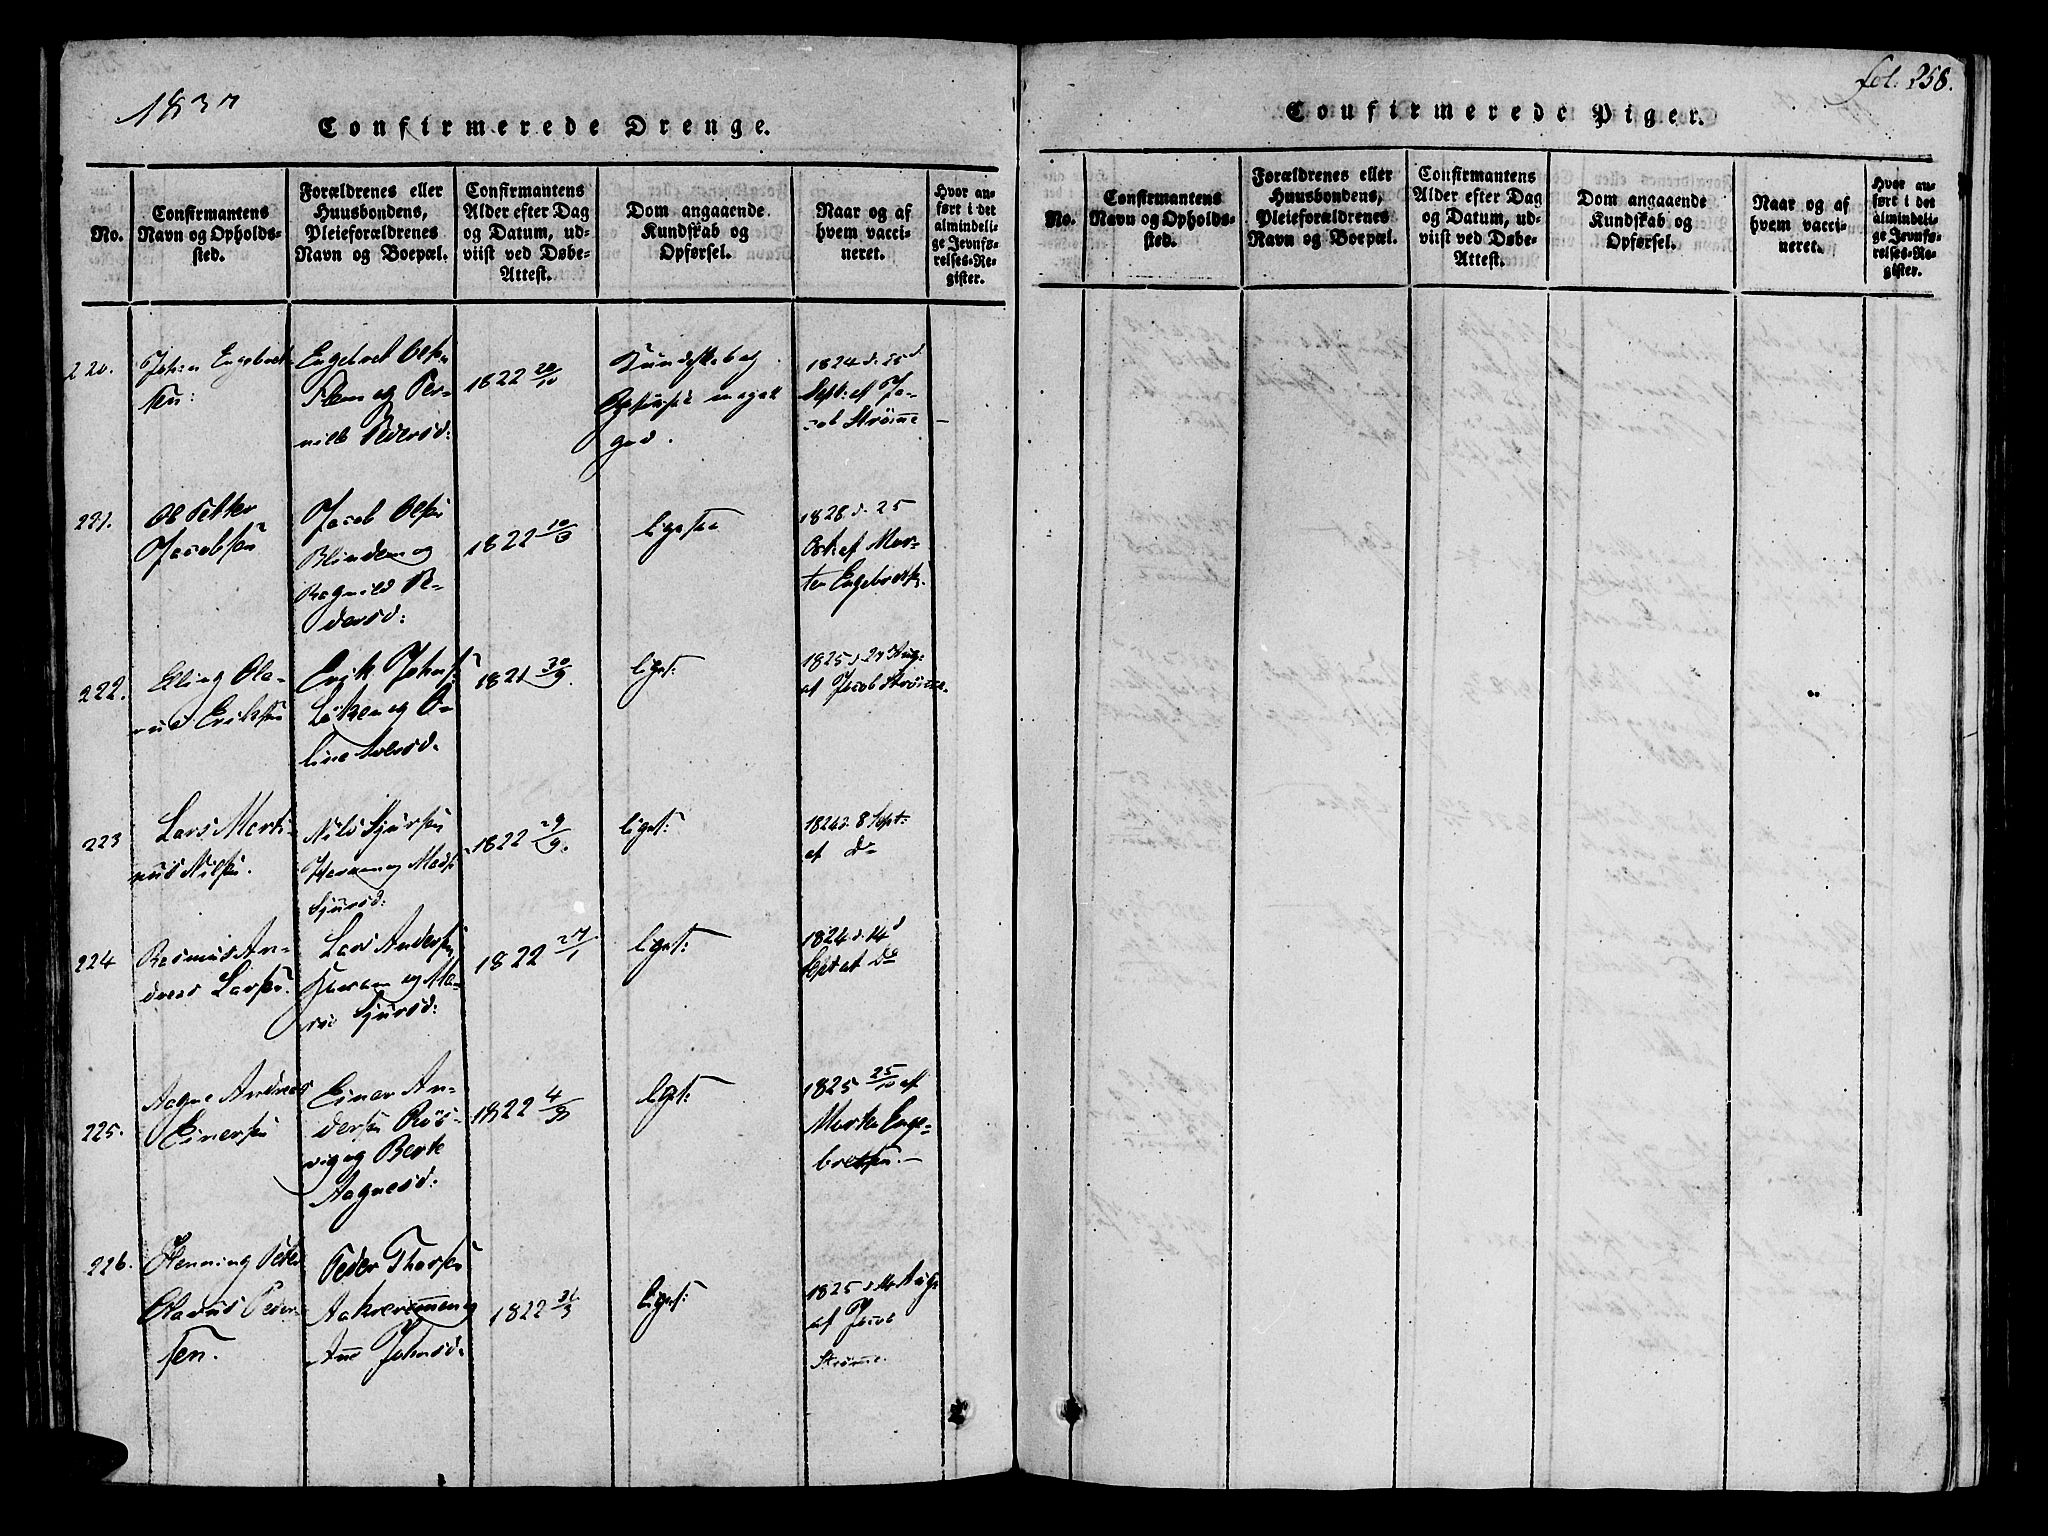 1837
Confirmerede Drenge.
No.
Confirmantens
Navn og Opholds-
sted.
Forældrenes eller
Huusbondens,
Pleieforældrenes
Navn og Boepæl.
Confirmantens
Alder efter Dag
og Datum, ud-
viist ved Døbe-
Attest.
Dom angaaende
Kundskab og
Opførsel.
Naar og af
hvem vacci-
neret.
Hvor an-
ført i det
almindeli-
ge Jevnfø-
relses-Re-
gister.
220.
Johan Engebret-
sen:
Engebret Olsen
Flem og Per-
nille Pedersd:
1822 20/10
Kundskab og
Opførsel meget
god.
1824 d. 25d
Sept: af Ja-
cob Strømme
221.
Ole Petter
Jacobsen
Jacob Olsen
Blindem og
Ragnild Pe-
dersd:
1822 10/3
ligesaa
1828 d. 25
Oct af Mor-
ten Engebrets.
222.
Elling Ola-
us Eriksen
Erik Johns:
Løken og O-
line Iversd.
1821 30/9.
liges:
1825 d. 27 Aug:
af Jacob Strømme.
223
Lars Marti-
nus Nilsen.
Nils Sjursen
Haram og Mads
Sjursd:
1822 29/9.
liges:
1824 d. 8 Sept:
af Do
224
Rasmus An-
dreas Larsen.
Lars Andersen
Haram og Ma-
rie Sjursd:
1822 27/1
liges:
1824 d. 14d
Sept af Do
225.
Aagne Andreas
Einersen
Einer An-
dersen Røs-
vig og Berte
Aagnesd:
1822 4/3
liges:
1825 25/10 af
Morten Enge-
bretsen.
226.
Henning Peter
Olaus Peder-
sen.
Peder Thorsen
Aakremmen og
Ane Johnsd.
1822 31/3
liges:
1825 d. Aug:
af Jacob
Strømme.
fol. 258.
Confirmerede Piger.
No.
Confirmantens
Navn og Opholds-
sted.
Forældrenes eller
Huusbondens,
Pleieforældrenes
Navn og Boepæl.
Confirmantens
Alder efter Dag
og Datum, ud-
viist ved Døbe-
Attest.
Dom angaaende
Kundskab og
Opførsel.
Naar og af
hvem vacci-
neret.
Hvor an-
ført i det
almindeli-
ge Jevnfø-
relses-Re-
gister.